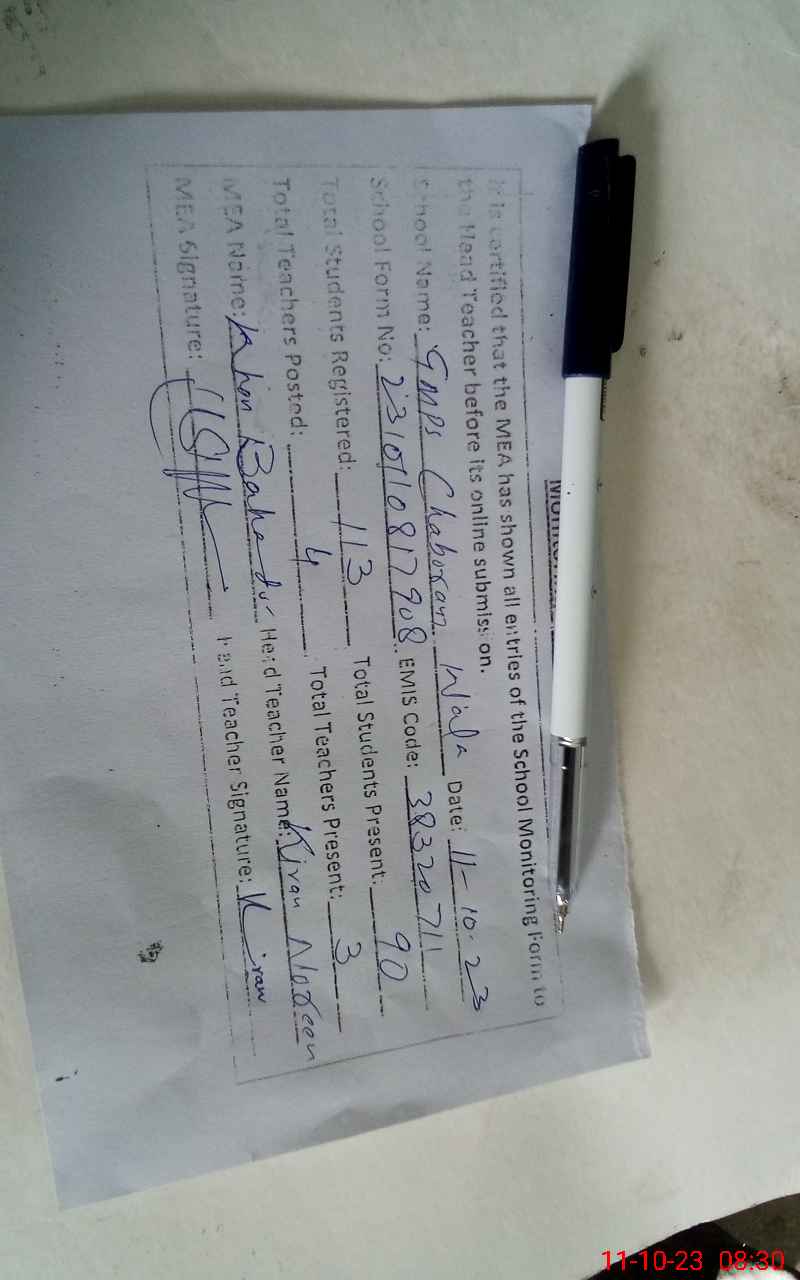 It is certified that the MEA has shown all entries of the School Monitoring Form to
the Head Teacher before its online submission.
School Name: GMPS Chaboxam Wala Date: 11-10-23
School Form No: 2310110817908 EMIS Code: 38320711
Total Students Registered: 113 Total Students Present: 90
Total Teachers Posted: 4 Total Teachers Present: 3
MEA Name: Khan Bahadur Head Teacher Name: Kiran Noreen
MEA Signature: Head Teacher Signature: Kiran
11-10-23 08:30